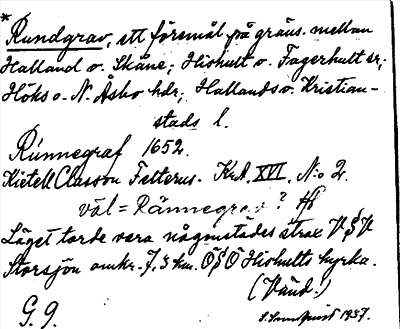 * Rundgrav, ett föremål på gräns. mellan
Halland o. Skåne; Hishult o. Fagerhult sr;
Höks o. N. Åsbo hdr; Hallands o. Kristian-
stads l.
Rúnnegraf 1652.
Kietell Classon Felterus. KrA. XVI. No 2.
väl = Rännegrav?
Läget torde vara någonstädes strax V§V
Storsjön omkr. 7.5 km. Ö§Ö Hishults kyrka.
(Vänd.)
G. 9. 1937.